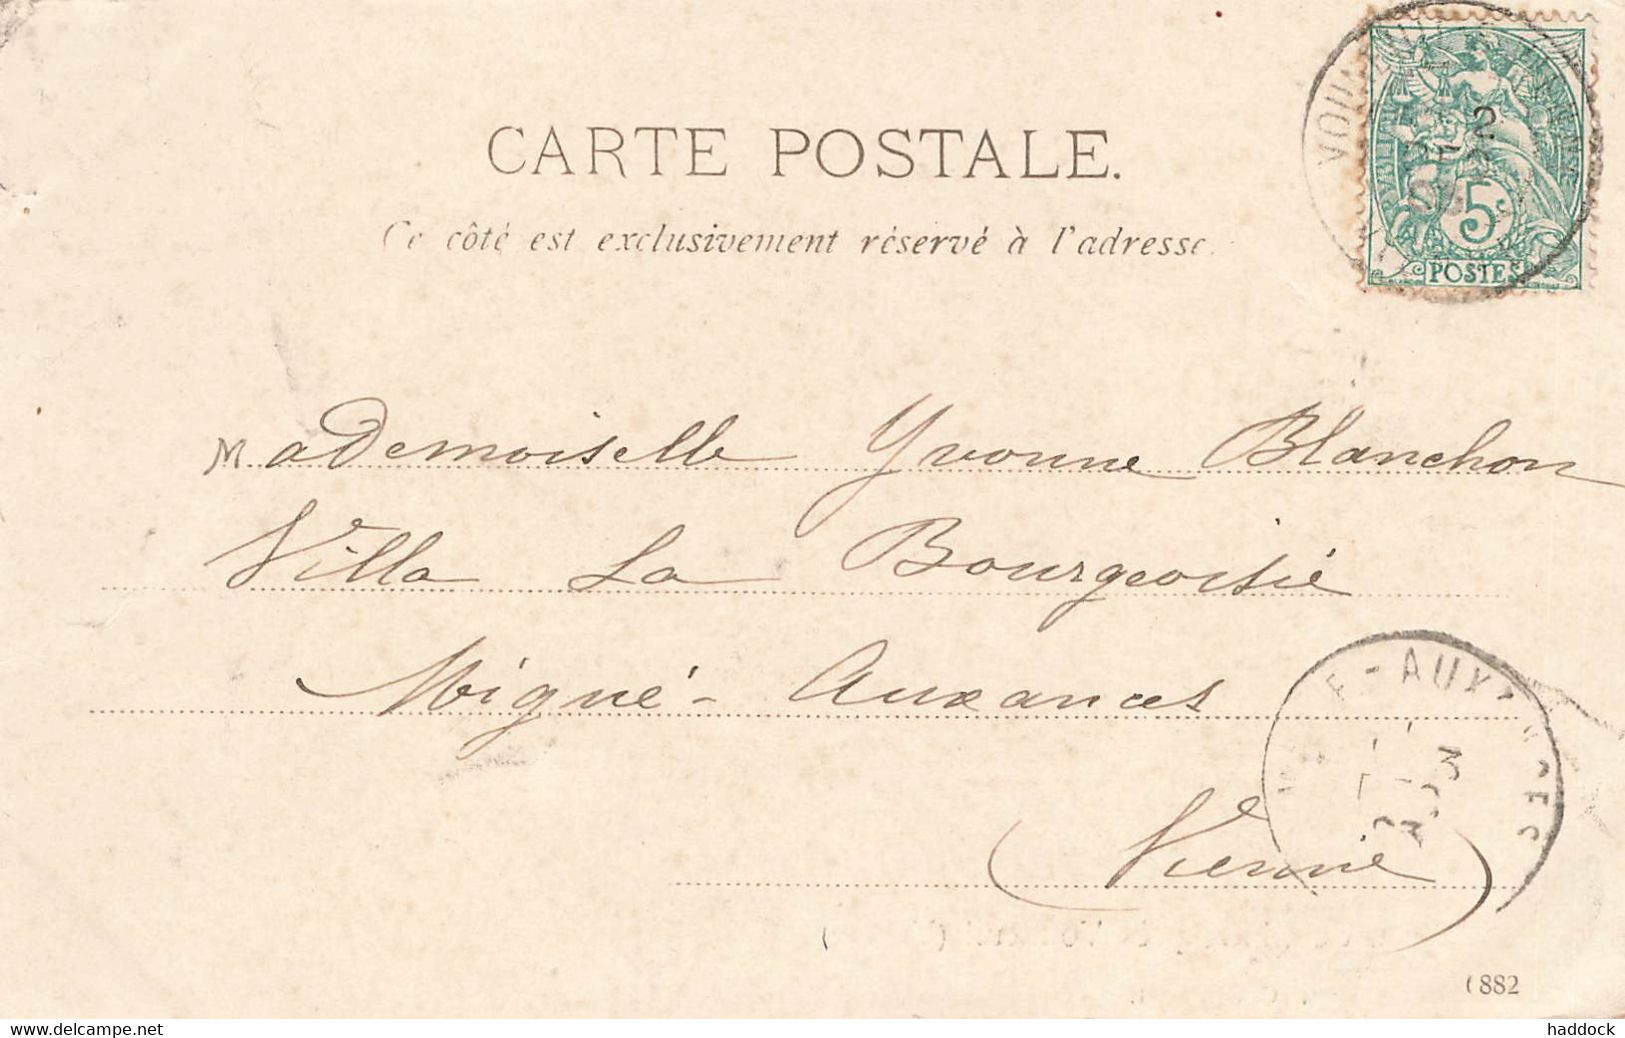 CARTE POSTALE.
Ce côté est exclusivement réservé à l'adresse.
2
5c
POSTES
Mademoiselle Yvonne Blanchon
Villa La Bourgeoisie
Migné-Auxances
(Vienne)
E-AUXANCES
882
www.delcampe.net
haddock